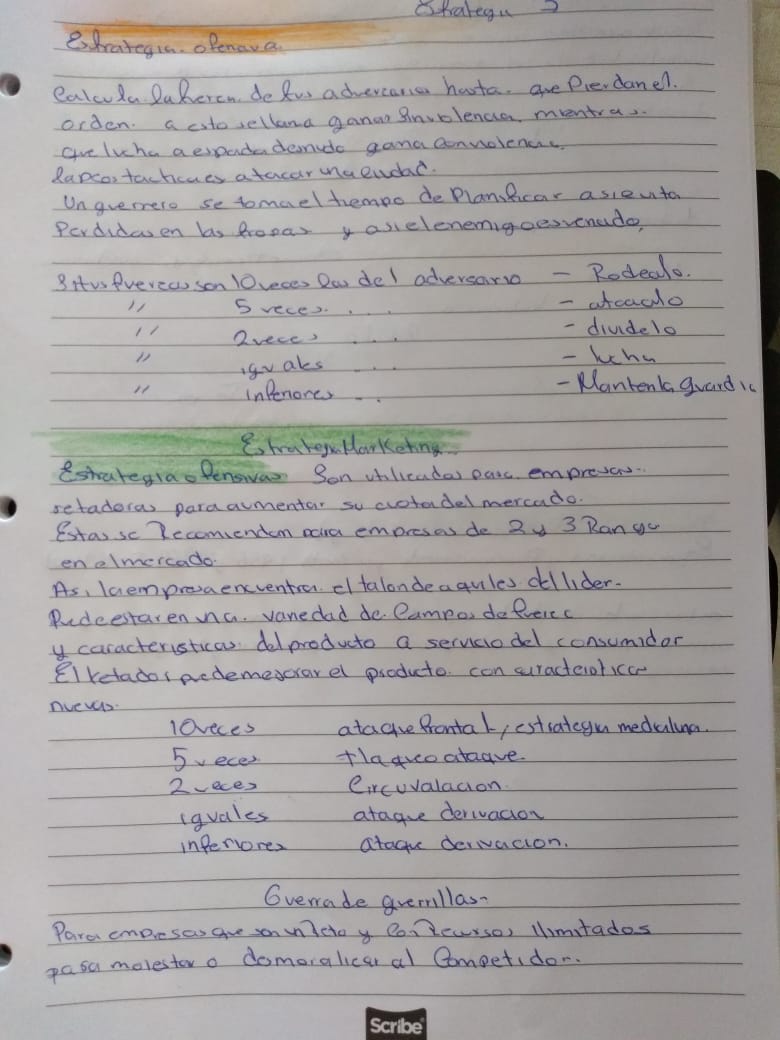 Estrategia 3
Estrategia ofensiva
Calcula la fuerza de tus adversarios hasta que Pierdan el
orden. a esto se llama ganar sin violencia, mientras
que lucha a espada desnuda gana con violencia.
la peor tactica es atacar una ciudad.
Un guerrero se toma el tiempo de Planificar asi evita
Perdidas en las tropas y asi el enemigo es vencido,
Si tus fuerzas son 10 veces las del adversario - Rodealo.
" 5 veces . . . - atacalo
" 2 veces . . . - dividelo
" iguales . . . - lucha
" inferiores . . - Manten la guardia
Estrategia Marketing
Estrategia ofensivas Son utilizadas para empresas
retadoras para aumentar su cuota del mercado.
Estas se Recomiendan para empresas de 2 y 3 Rango
en el mercado.
Asi la empresa encuentra el talon de aquiles del lider.
Puede estar en una variedad de Campos de fuerza
y caracteristicas del producto a servicio del consumidor
El retador puede mejorar el producto con caracteristica
nuevas.
10 veces ataque frontal, estrategia media luna.
5 veces flaqueo ataque
2 veces Circuvalacion.
iguales ataque derivacion
inferiores ataque derivacion.
Guerra de guerrillas-
Para empresas que son y con Recursos limitados
para molestar o demoralicar al Competidor.
Scribe